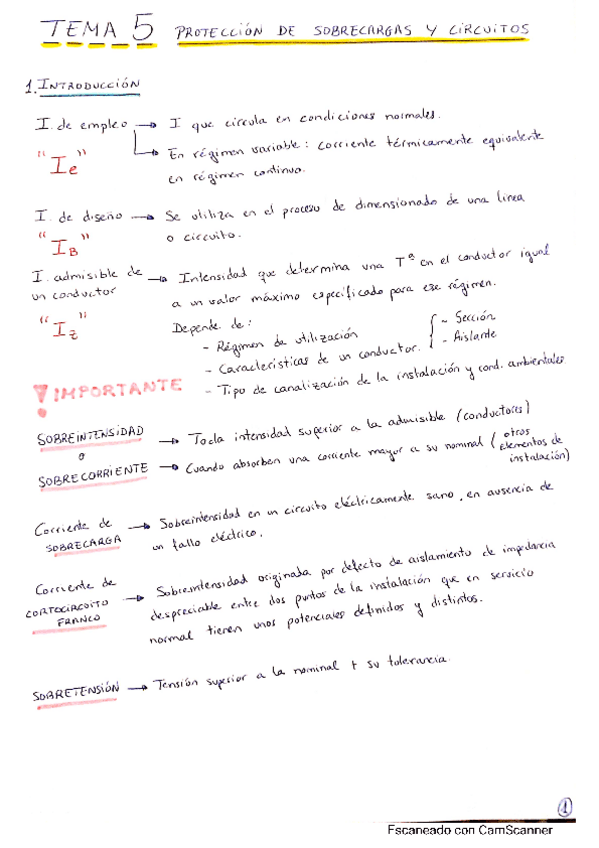 TEMA 5 PROTECCIÓN DE SOBRECARGAS Y CIRCUITOS
1. INTRODUCCIÓN
I. de empleo → I que circula en condiciones normales.
"Ie" → En régimen variable: corriente térmicamente equivalente
en régimen continuo.
I. de diseño → Se utiliza en el proceso de dimensionado de una línea
"IB" o circuito.
I. admisible de → Intensidad que determina una Tª en el conductor igual
un conductor a un valor máximo especificado para ese régimen.
"Iz" Depende de:
- Régimen de utilización
- Características de un conductor. { - Sección
- Aislante
- Tipo de canalización de la instalación y cond. ambientales
! IMPORTANTE
SOBREINTENSIDAD → Toda intensidad superior a la admisible (conductores)
o
SOBRECORRIENTE → Cuando absorben una corriente mayor a su nominal (otros
elementos de
instalación)
Corriente de → Sobreintensidad en un circuito eléctricamente sano, en ausencia de
SOBRECARGA un fallo eléctrico.
Corriente de → Sobreintensidad originada por defecto de aislamiento de impedancia
CORTOCIRCUITO despreciable entre dos puntos de la instalación que en servicio
FRANCO normal tienen unos potenciales definidos y distintos.
SOBRETENSIÓN → Tensión superior a la nominal + su tolerancia.
1
Escaneado con CamScanner